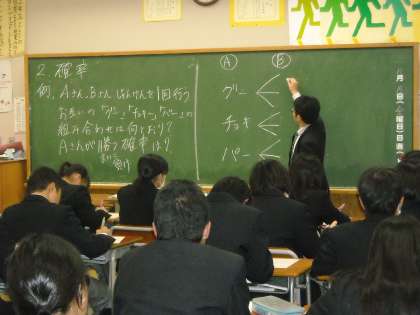 2. 確率
例. Aさん、Bさん じゃんけんを1回行う
お互いの「グー」「チョキ」「パー」の
組み合わせは何とおり?
Aさんが勝つ確率は?
Ⓐ Ⓑ
グー
チョキ
パー